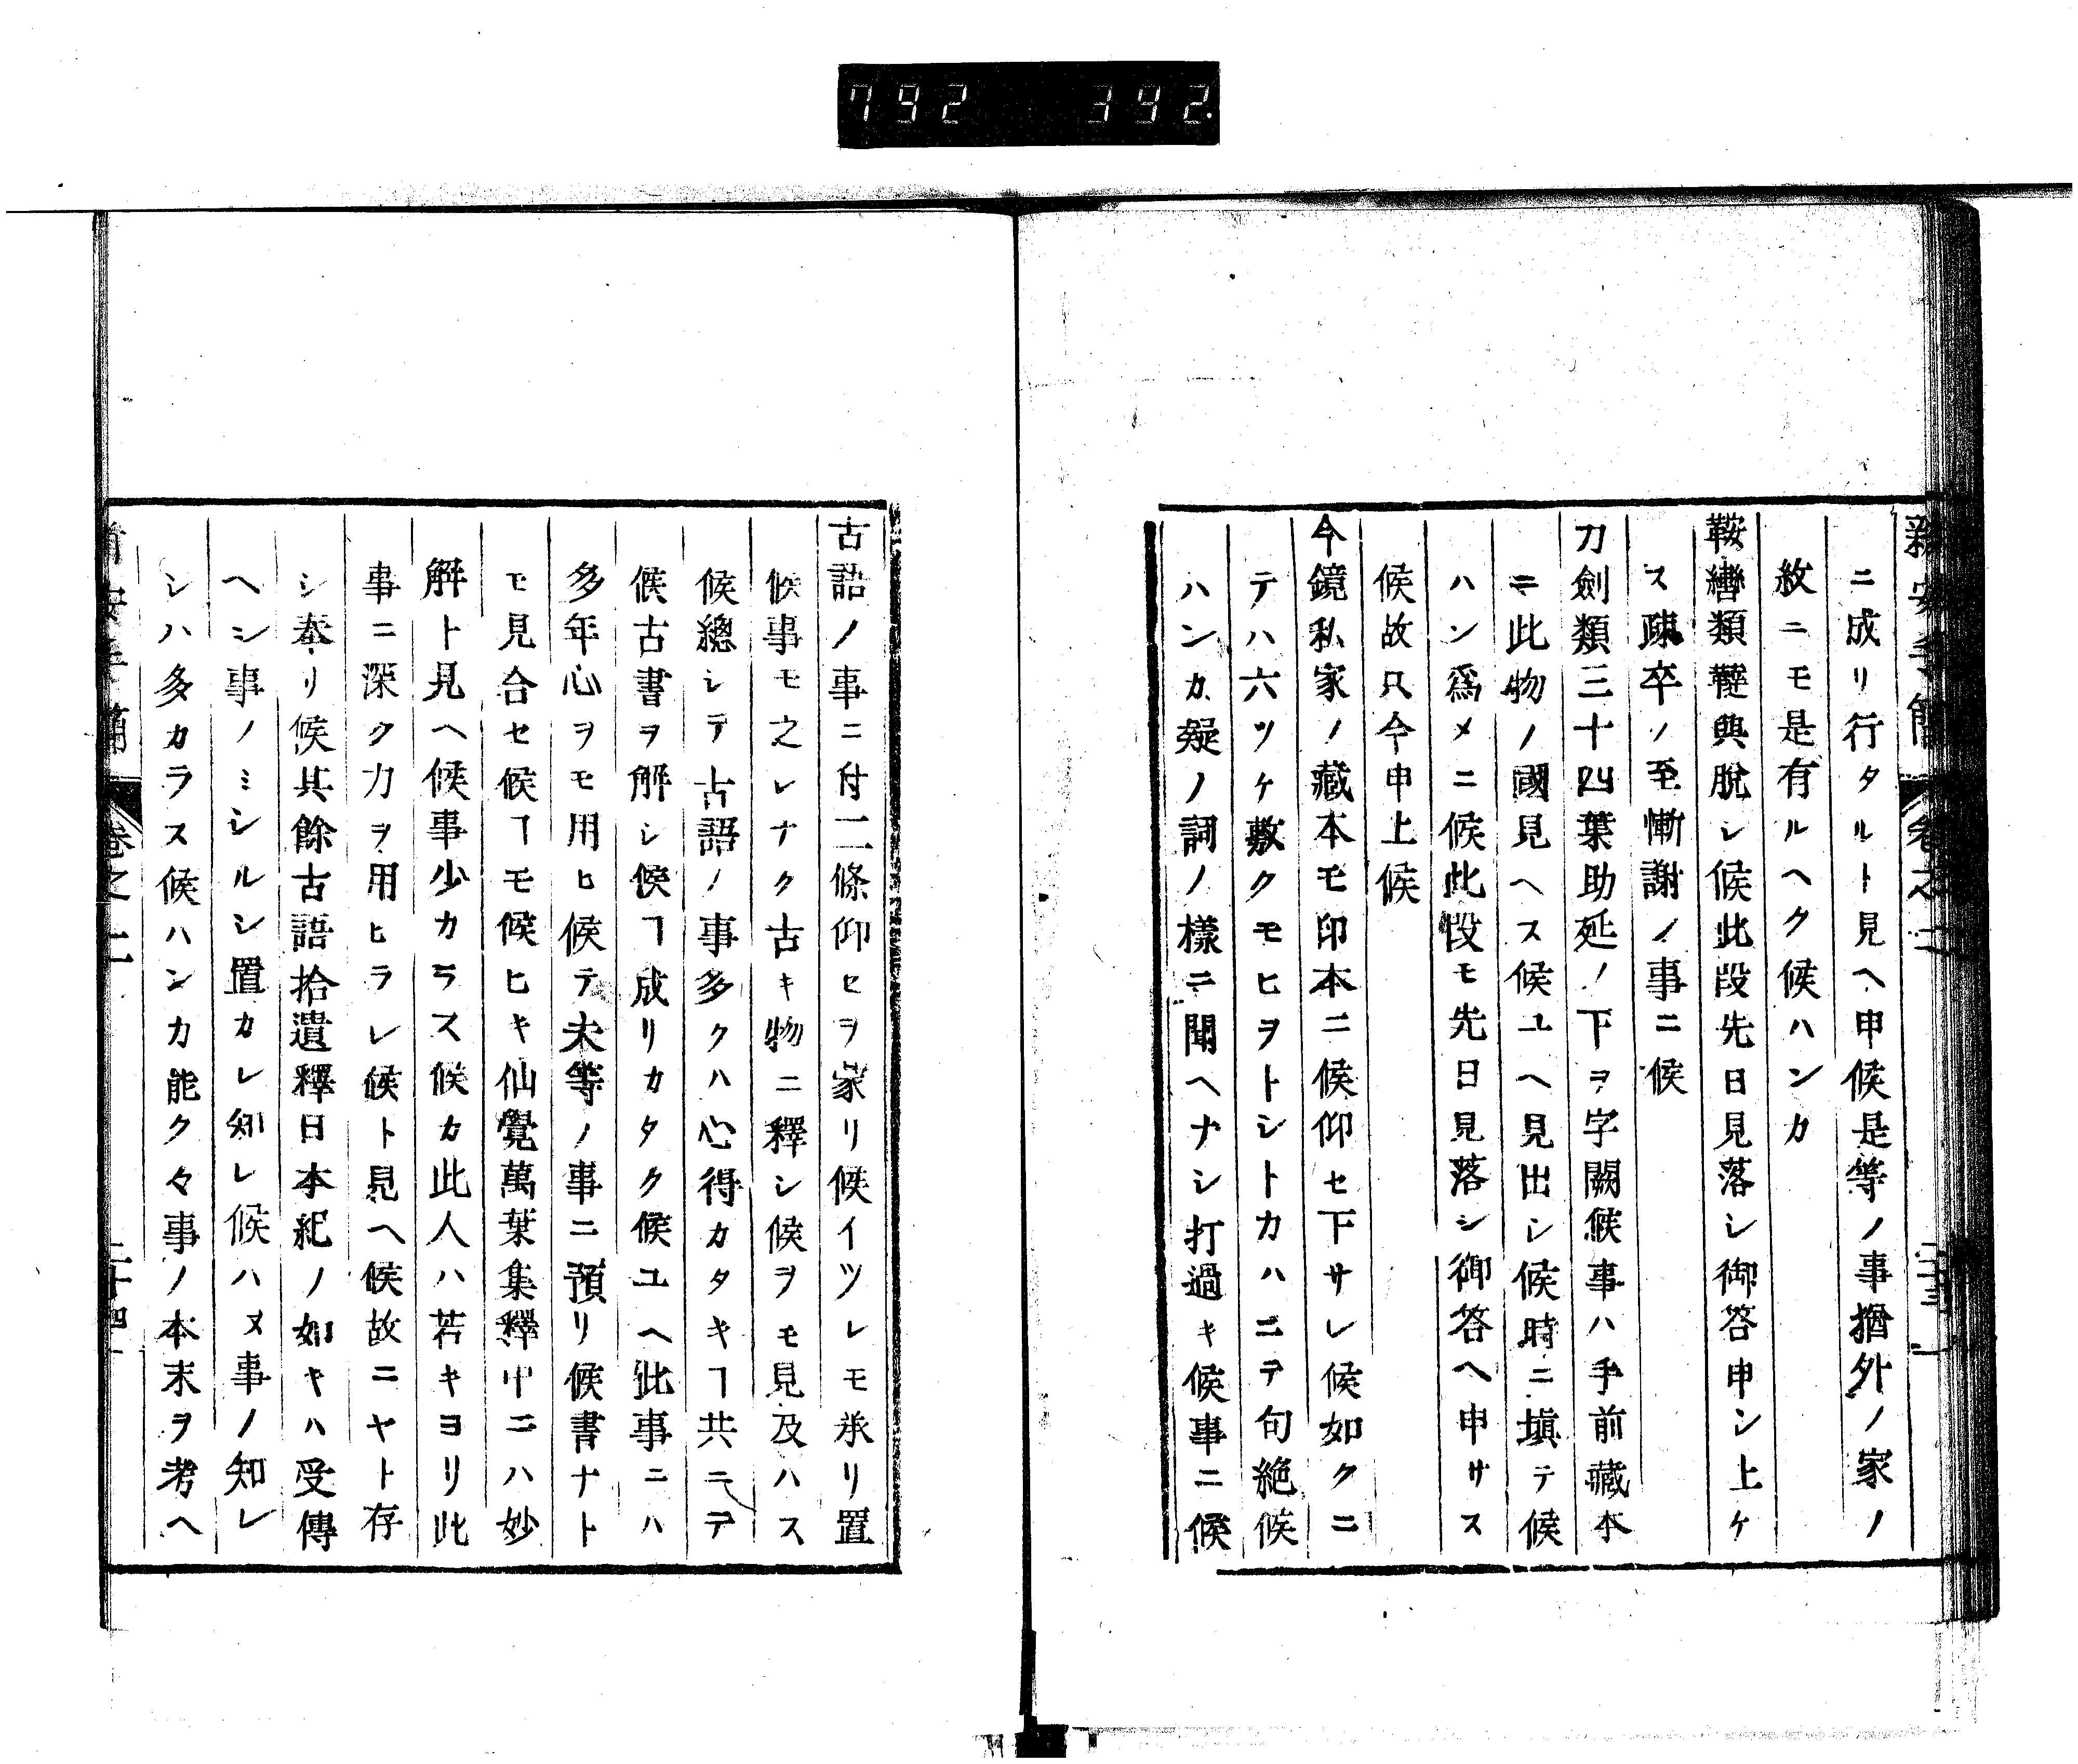 792 392.
新安手簡 卷之二
ニ成リ行タルト見ヘ申候是等ノ事猶外ノ家ノ
敀ニモ是有ルヘク候ハンカ
鞍轡類韃輿脫レ候此段先日見落シ御答申シ上ケ
ス疎卒ノ至慚謝ノ事ニ候
刀劍類三十四葉助延ノ下ヲ字闕候事ハ手前藏本
ニ此物ノ國見ヘス候ユヘ見出シ候時ニ塡テ候
ハン爲メニ候此段モ先日見落シ御答ヘ申サス
候故只今申上候
今鏡私家ノ藏本モ印本ニ候仰セ下サレ候如クニ
テハ六ツケ敷クモヒヲトシトカハニテ句絶候
ハンカ疑ノ詞ノ樣ニ聞ヘナシ打過キ候事ニ候
古語ノ事ニ付二條仰セヲ家リ候イツレモ承リ置
候事モ之レナク古キ物ニ釋シ候ヲモ見及ハス
候總シテ古語ノ事多クハ心得カタキヿ共ニテ
候古書ヲ解シ候ヿ成リカタク候ユヘ此事ニハ
多年心ヲモ用ヒ候テ夫等ノ事ニ預リ候書ナト
モ見合セ候ヿモ候ヒキ仙覺萬葉集釋中ニハ妙
解ト見ヘ候事少カラス候カ此人ハ若キヨリ此
事ニ深ク力ヲ用ヒラレ候ト見ヘ候故ニヤト存
シ奉リ候其餘古語拾遺釋日本紀ノ如キハ受傳
ヘシ事ノミシルシ置カレ知レ候ハヌ事ノ知レ
シハ多カラス候ハンカ能ク々事ノ本末ヲ考ヘ
新安手簡 卷之二 二十四